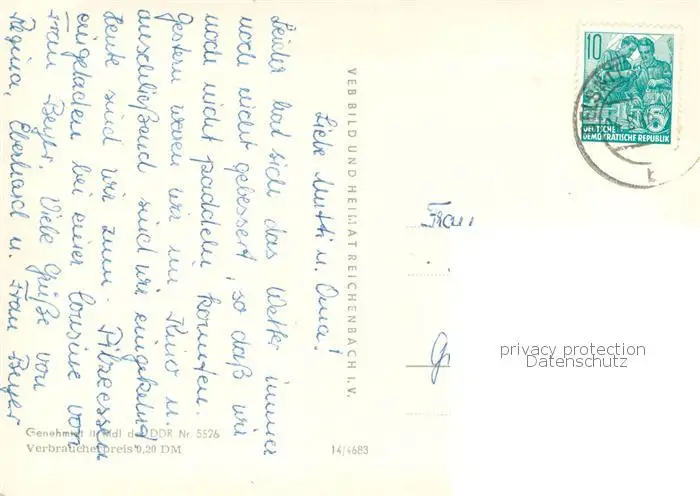 Liebe Mutti u. Oma!
Leider hat sich das Wetter immer
noch nicht gebessert, so daß wir
noch nicht paddeln konnten.
Gestern waren wir im Kino u.
anschließend sind wir eingekehrt
Heute sind wir zum Pilzeessen
eingeladen bei einer Cousine von
Frau Beyer. Viele Grüße von
Regina, Eberhard u. Frau Beyer
VEB BILD UND HEIMAT REICHENBACH I. V.
10
DEUTSCHE
DEMOKRATISCHE REPUBLIK
Frau
privacy protection
Datenschutz
Genehmigt MdI der DDR Nr. 5526
Verbraucherpreis 0,20 DM
14/4683